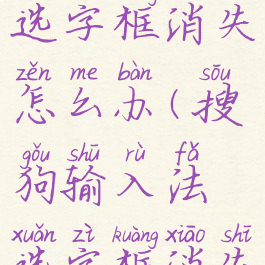 选字框消失
zěn me bàn sōu
怎么办(搜
gǒu shū rù fǎ
狗输入法
xuǎn zì kuàng xiāo shī
选字框消失